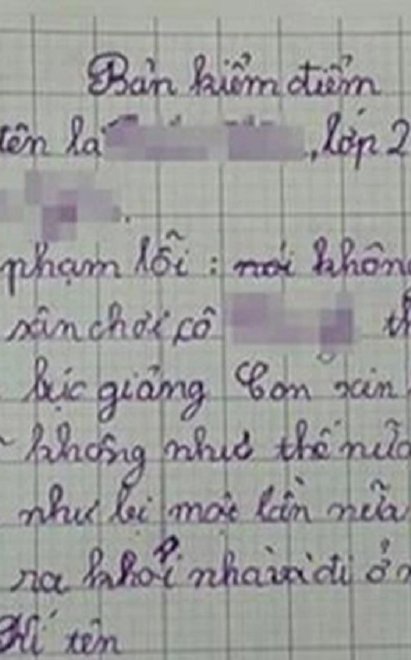 Bản kiểm điểm
tên là , lớp 2
phạm lỗi : nói không
sân chơi cô th
bục giảng Con xin
không như thế nữa
như bị một lần nữa
ra khỏi nhà và đi ở
Kí tên